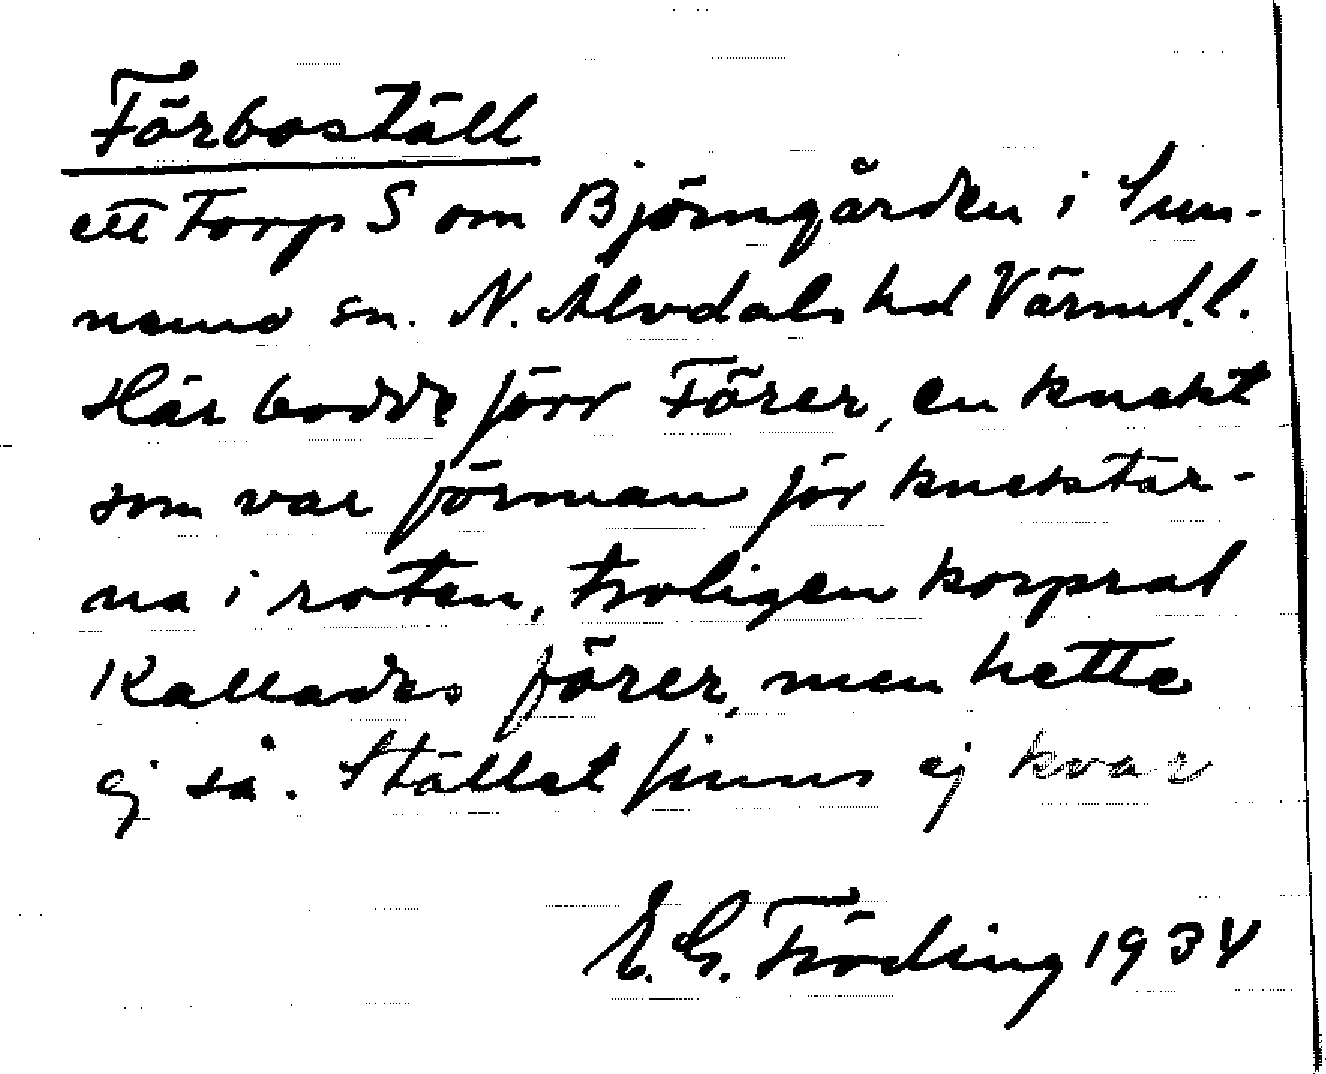 Förboställ
ett torp S om Björngården i Sun-
nemo sn. N. Älvdals hd Värml.l.
Här bodde förr Förer, en knekt
som var förman för knektar-
na i roten, troligen korpral
Kallades förer, men hette
ej så. Stället finns ej kvar
E. G. Fröding 1934